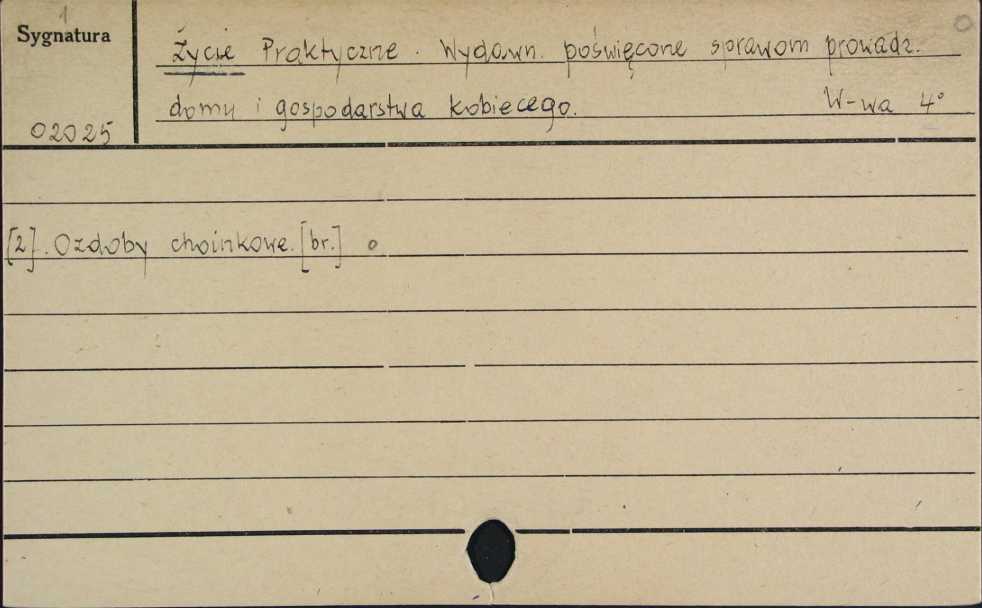 1
Sygnatura
Życie Praktyczne. Wydawn. poświęcone sprawom prowadz.
domu i gospodarstwa kobiecego. W-wa 4°
02025
[2]. Ozdoby choinkowe. [br.] o